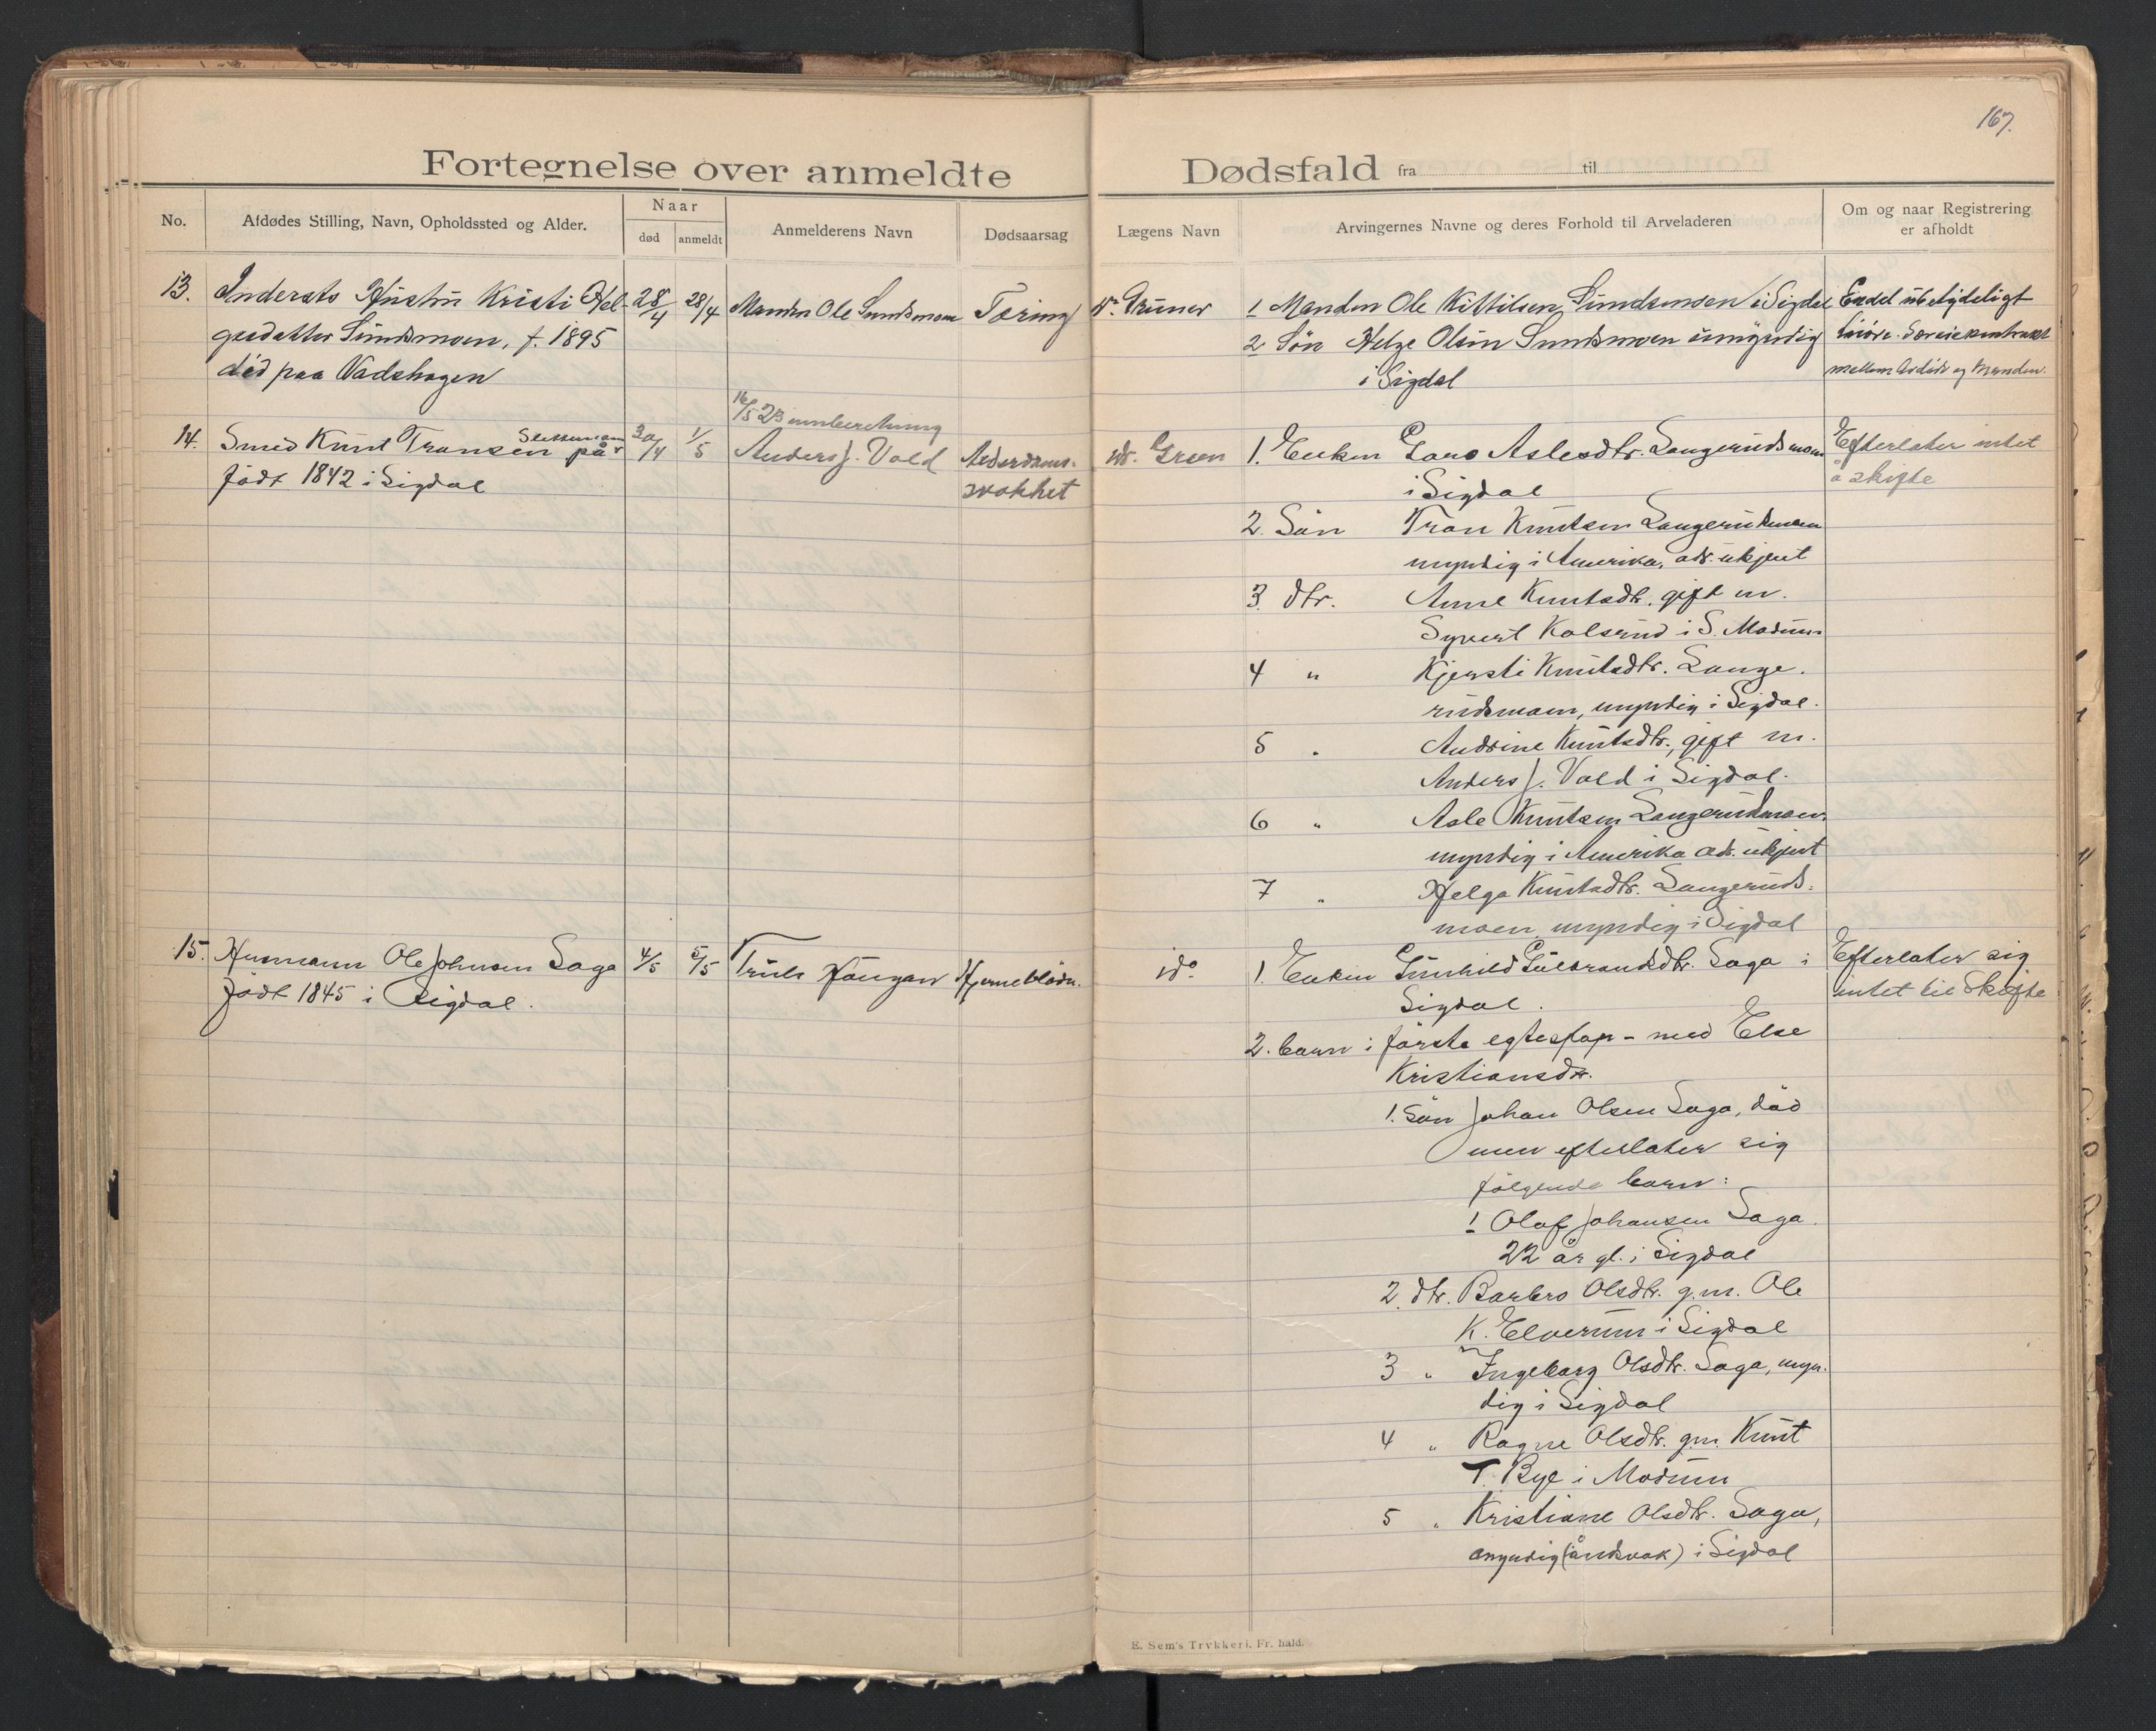 167.
Fortegnelse over anmeldte Dødsfald fra til
No.
Afdødes Stilling, Navn, Opholdssted og Alder.
Naar
død
anmeldt
Anmelderens Navn
Dødsaarsag
Lægens Navn
Arvingernes Navne og deres Forhold til Arveladeren
Om og naar Registrering
er afholdt
13. Indersts Hustru Kristi Hel- 28/4 28/4 Manden Ole Sundsmoen Tæring
gesdatter Sundsmoen, f. 1895
død paa Vadshagen
Dr. Gruner
1 Manden Ole Kittilsen Sundsmoen i Sigdal
2 Søn Helge Olsen Sundsmoen umyndig
i Sigdal
Endel ubetydeligt
mellem Avdøde og Manden.
16/5 23 innberetning
14. Smed Knut Transen på 30/4 1/5 Anders J. Vold Alderdoms-
født 1842 i Sigdal
svakhet
dr. Green
1. Enken Goro Aslesdtr. Langerudsmoen
i Sigdal
2. Søn Tran Knutsen Langerudsmoen
myndig i Amerika, adr. ukjent
3. dtr. Anne Knutsdtr. gift m.
Syvert Kolsrud i S. Modum
4 " Kjersti Knutsdtr. Lange-
rudsmoen, myndig i Sigdal.
5 " Andrine Knutsdtr., gift m.
Anders J. Vold i Sigdal.
6 " Asle Knutsen Langerudsmoen
myndig i Amerika adr. ukjent
7 " Helga Knutsdtr. Langeruds-
moen, myndig i Sigdal
Efterlater intet
å skifte
15. Husmann Ole Johnsen Saga 4/5 5/5 Truls Haugan Hjerneblødn.
født 1845 i Sigdal.
do
1. Enken Gunhild Gulbrandsdtr. Saga i
Sigdal.
2. barn i første egteskap - med Else
Kristiansdtr.
1. Søn Johan Olsen Saga, død
men efterlater sig
følgende barn:
1 Olaf Johansen Saga.
22 år gl. i Sigdal
2. dtr. Barbro Olsdtr. g.m. Ole
K. Elverum i Sigdal
3 " Ingeborg Olsdtr. Saga, myn-
dig i Sigdal
4 " Ragne Olsdtr. gm. Knut
T. Bye i Modum
5 " Kristiane Olsdtr. Saga,
umyndig (åndsvak) i Sigdal
Efterlater sig
intet til Skifte
E. Sem's Trykkeri. Fr. hald.